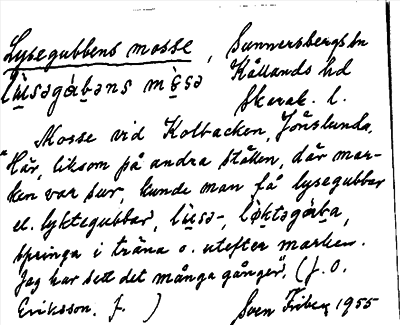 Lysegubbens mosse, Sunnersbergs sn
lùsəgòbəns mòsə Kållands hd
Skarab. l.
Mosse vid Kolbacken, Jönslunda.
"Här, liksom på andra ställen, där mar-
ken var sur, kunde man få lysegubbar
el. lyktegubbar, lùsə-, lỳktəgòba,
springa i träna o. utefter marken.
Jag har sett det många gånger". (J. O.
Eriksson. f. ) Sven Friberg 1955